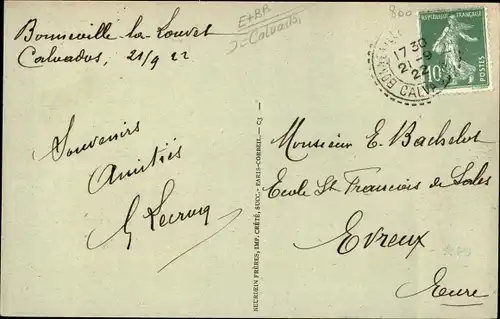 Bonneville la-Louvet
Calvados, 21/9 22
Souvenirs
Amitiés
E+BR
=Calvados
800
REPUBLIQUE FRANÇAISE
10
17 30
21-9
22
CALVADOS
NEURDEIN FRÈRES, IMP. CRÉTÉ, SUCC. - PARIS-CORBEIL. - CJ
Monsieur E. Bachelot
Ecole St Francois de Sales
Evreux
Eure